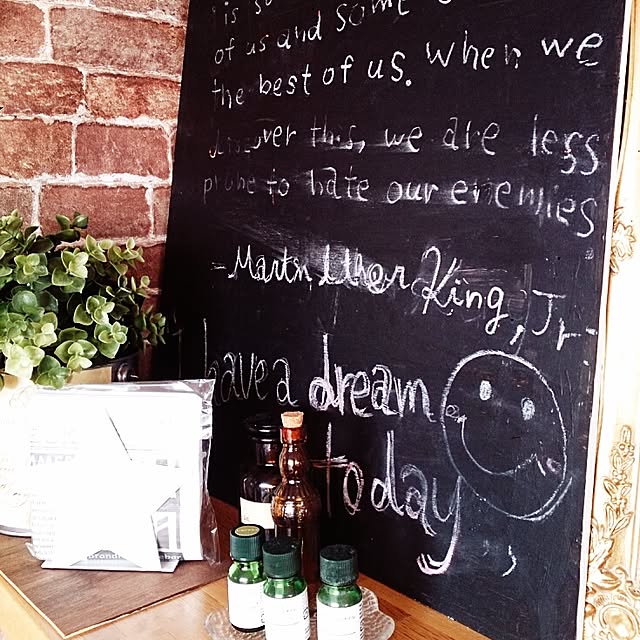 is so
of us and some
the best of us. when we
discover this, we are less
prone to hate our enemies
-Martin Luther King, Jr.
have a dream
today"